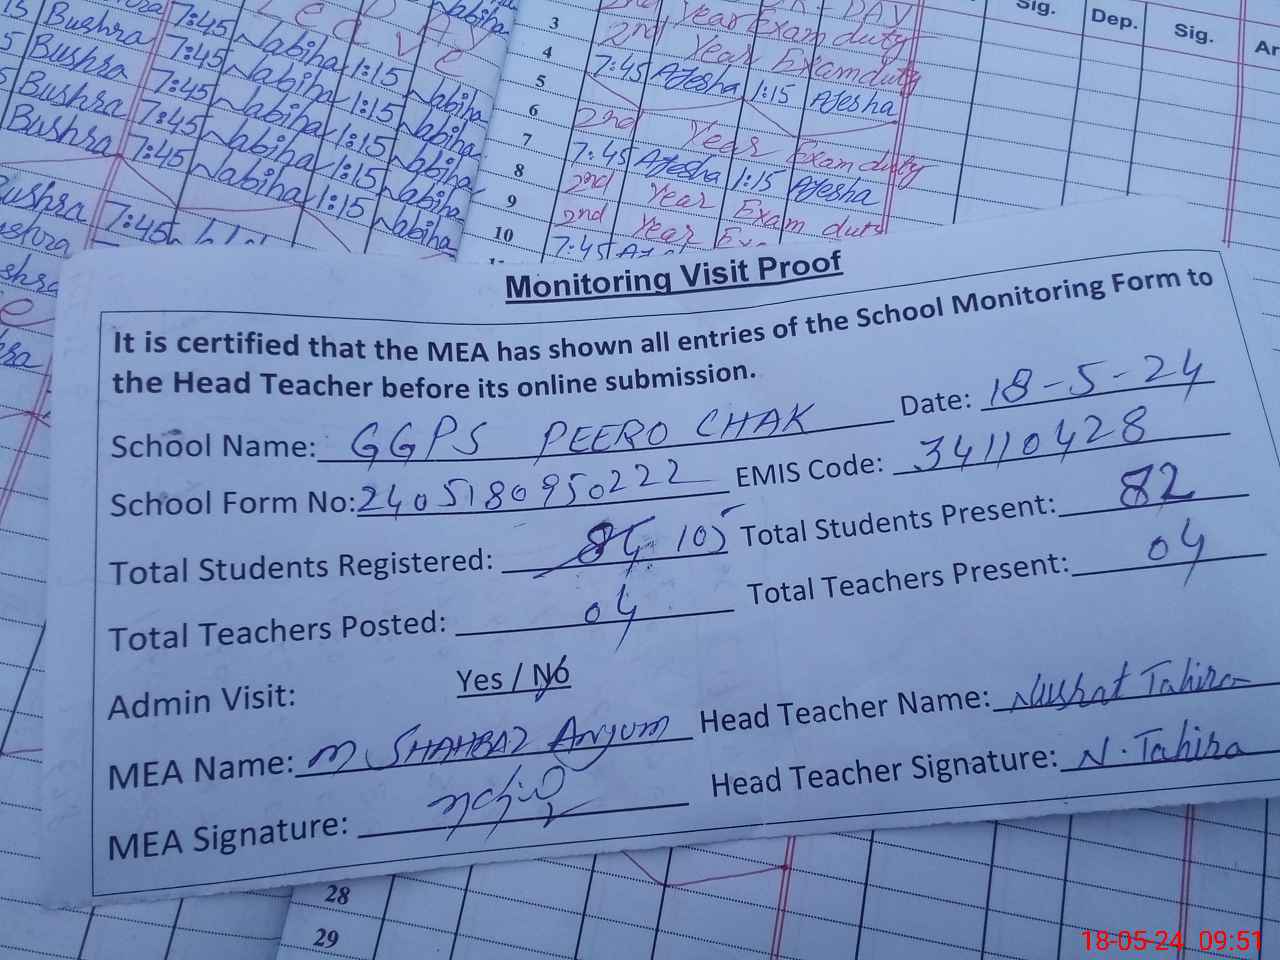 15 Bushra 7:45 Nabiha 1:15 Nabiha
5 Bushra 7:45 Nabiha 1:15 Nabiha
5 Bushra 7:45 Nabiha 1:15 Nabiha
Bushra 7:45 Nabiha 1:15 Nabiha
Bushra 7:45 Nabiha 1:15 Nabiha
7:45
Sig. Dep. Sig. Ar
3 2nd Year Exam duty
4 2nd Year Exam duty
5 7:45 Ajesha 1:15 Ajesha
6 2nd Year Exam duty
7 7:45 Ajesha 1:15 Ajesha
8 2nd Year Exam duty
9 2nd Year
10 7:45
Monitoring Visit Proof
It is certified that the MEA has shown all entries of the School Monitoring Form to
the Head Teacher before its online submission.
School Name: GGPS PEERO CHAK Date: 18-5-24
School Form No: 2405180950222 EMIS Code: 34110428
Total Students Registered: 84 105 Total Students Present: 82
Total Teachers Posted: 04 Total Teachers Present: 04
Admin Visit: Yes / No
MEA Name: M SHAHBAZ Anjum Head Teacher Name: Nushat Tahira
MEA Signature: Head Teacher Signature: N. Tahira
28
29
18-05-24 09:51